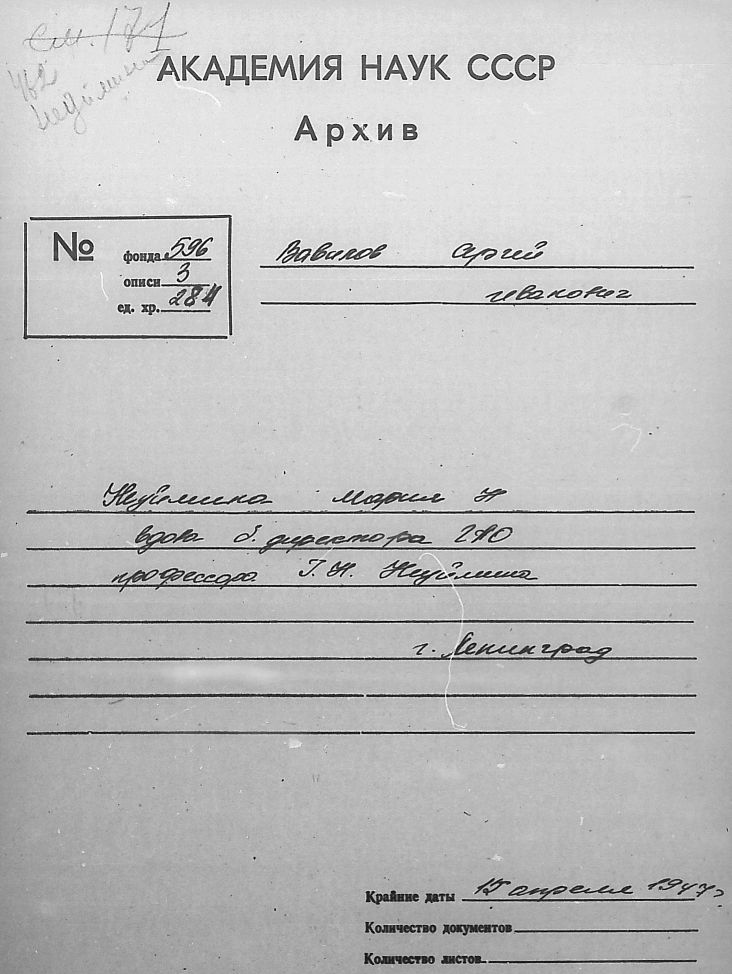 См. 171
462
Неуймин
АКАДЕМИЯ НАУК СССР
Архив
№
фонда 596
описи 3
ед. хр. 284
Вавилов Сергей
Иванович
Неуймина Мария Н
вдова б. директора ГАО
профессора Г.Н. Неуймина
г. Ленинград
Крайние даты 15 апреля 1947г
Количество документов
Количество листов